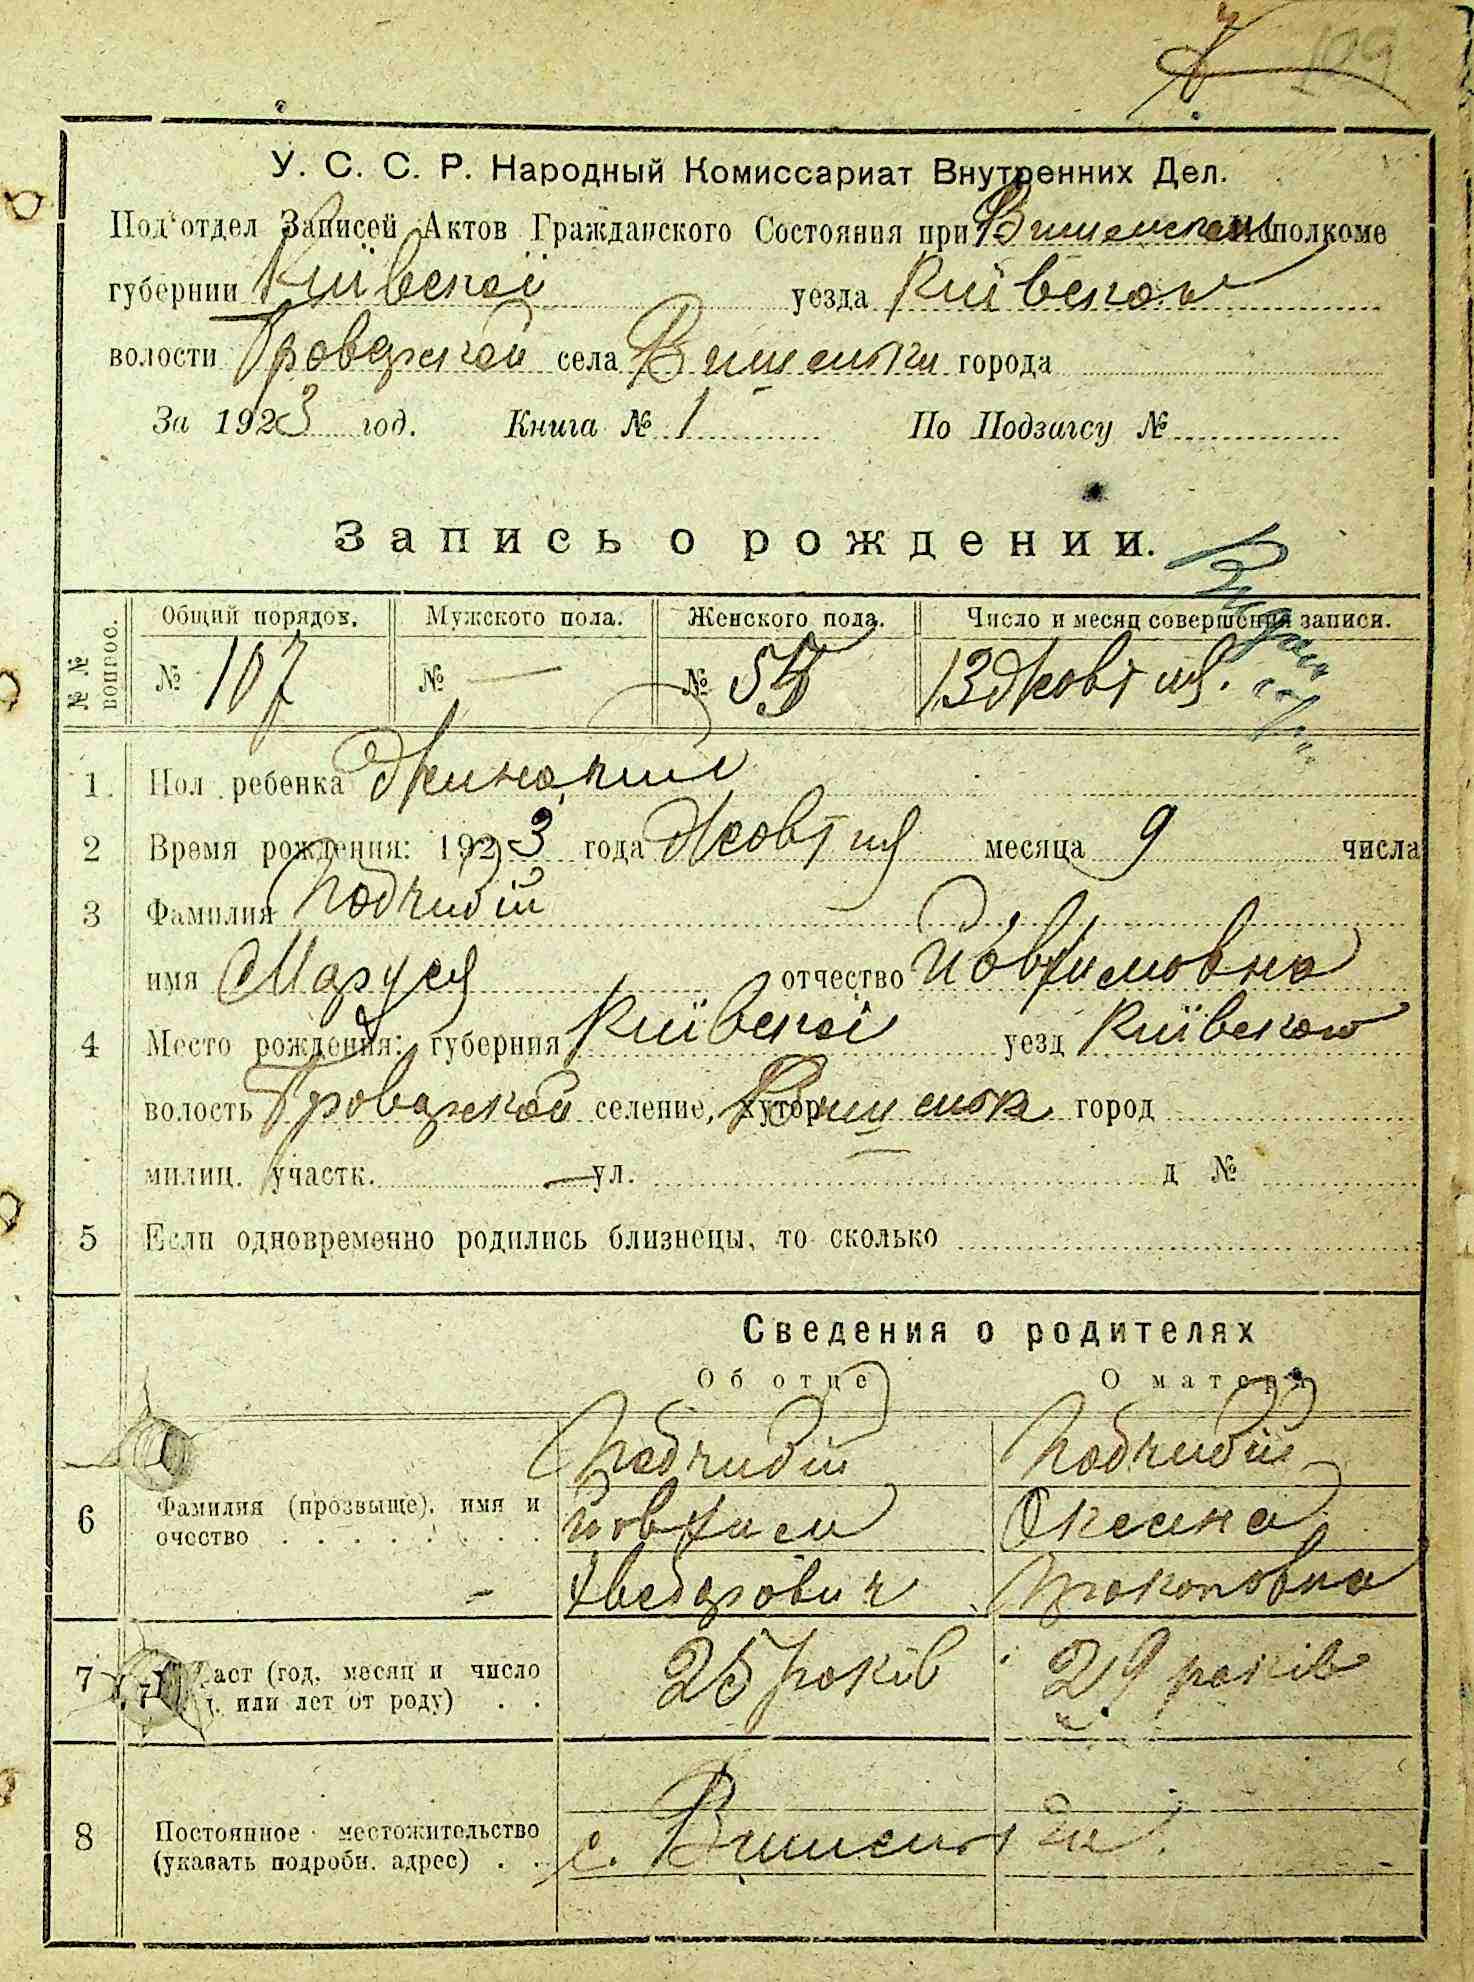 109
У. С. С. Р. Народный Комиссариат Внутренних Дел.
Под'отдел Записей Актов Гражданского Состояния при Вишенском Исполкоме
губернии Київскої уезда Київского
волости Броварской села Вишеньки города
За 1923 год. Книга № 1 По Подзагсу №
Запись о рождении.
№ № вопрос. Общий порядок. Мужского пола. Женского пола. Число и месяц совершения записи.
№ 107 № — № 55 13 Жовтня.
1. Пол ребенка Жиночий
2 Время рождения: 1923 года Жовтня месяца 9 числа
3 Фамилия Подчибій
имя Маруся отчество Йовхимовна
4 Место рождения: губерния Київскої уезд Київского
волость Броварской селение, хутор Вишеньк город
милиц. участк. — ул. д №
5 Если одновременно родились близнецы, то сколько
Сведения о родителях
Об отце О матери
Подчибій Подчибій
6 Фамилия (прозвыще), имя и Йовхим Оксана
очество . . . . . . . . Хведорович Прокоповна
7 раст (год, месяц и число 25 років 29 років
. или лет от роду) . .
8 Постоянное местожительство
(указать подробн. адрес) . . с. Вишеньки.